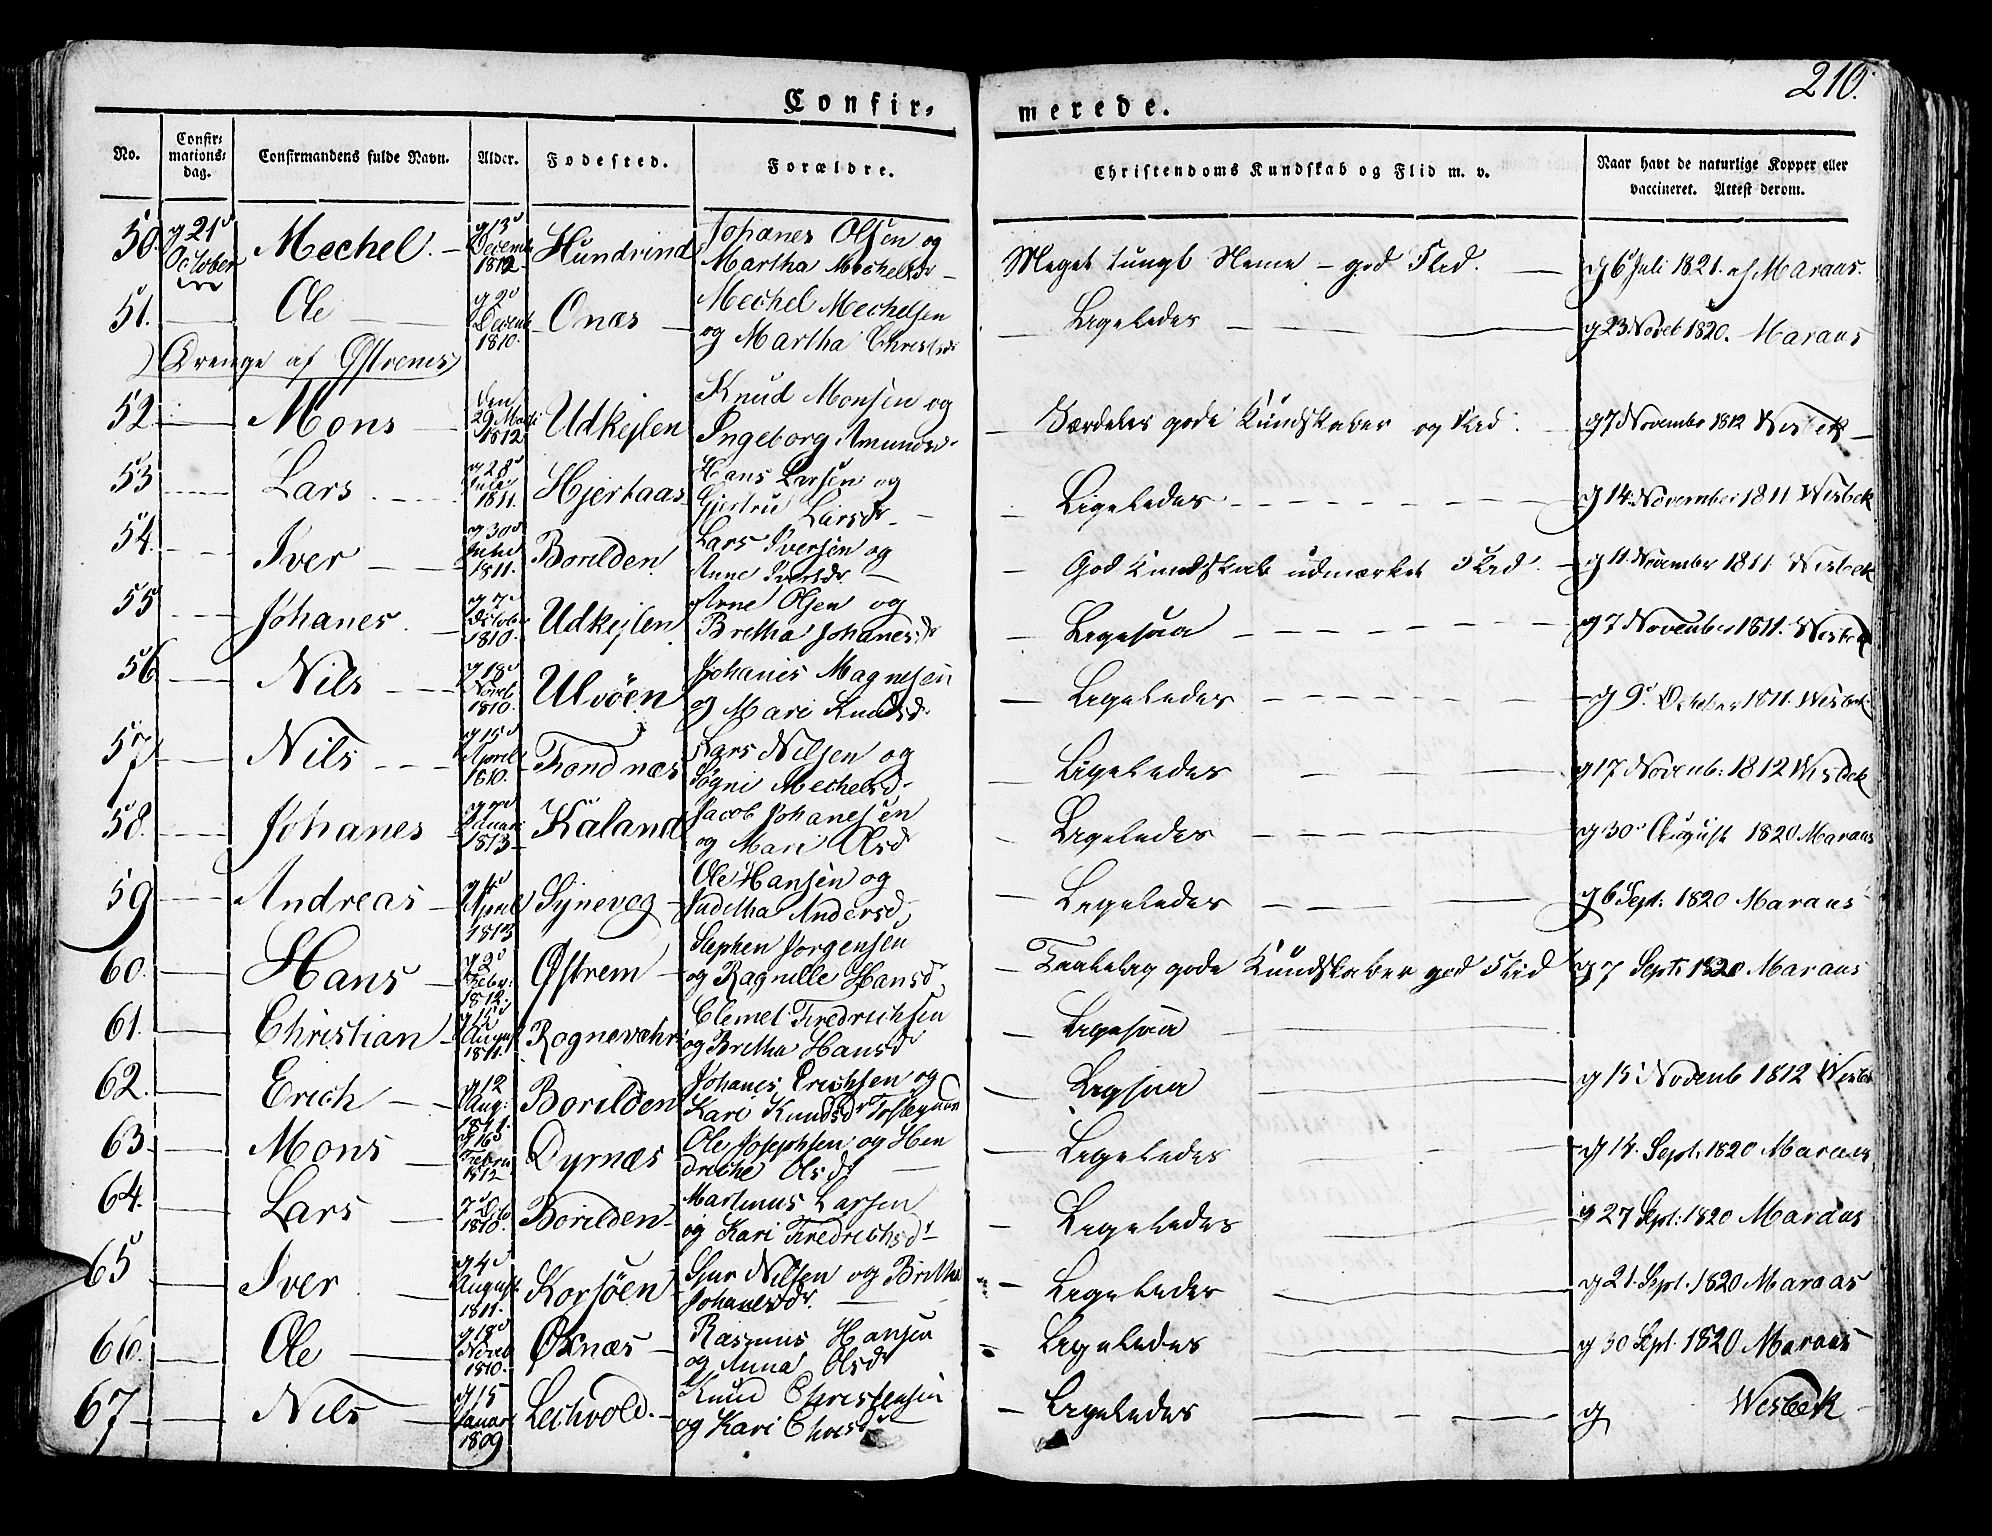 210.
Confir-
merede.
No.
Confir-
mations-
dag.
Confirmandens fulde Navn.
Alder.
Fødested.
Forældre.
Christendoms Kundskab og Flid m. v.
Naar havt de naturlige Kopper eller
vaccineret. Attest derom.
50. 21 October Mechel. 13 Decemb 1812 Hundrind Johanes Olsen og
Martha Mechelsdr
Meget tungt Neme - god Flid. 6 Juli 1821. af Maraas.
51. Ole 2 Decemb 1810. Onæs Mechel Mechelsen
og Martha Christsdr
Ligeledes 23 Noveb 1820. Maraas
Drenge af Østrems
52 Mons den 29 Martii 1812 Udkejlen Knud Monsen og
Ingeborg Amundsdr
Særdeles gode Kundskaber og Flid. 7 November 1812 Wesbek
53 Lars 28 Julii 1811. Hjertaas Hans Larsen og
Gjertru Larsdr
Ligeledes 14 November 1811 Wesbek
54. Iver 30 1811. Borilden Lars Iversen og
Anne Iversdr
God Kundskab udmærket Flid. 11 November 1811 Wesbek
55 Johanes 7 Octob 1810. Udkejlen Arne Olsen og
Bretha Johanesdr
Ligesaa 7 November 1811. Wesbek
56 Nils 18 Noveb 1810. Ulvöen Johanes Magnesen
og Mari Knudsd.
Ligeledes 9 October 1811. Wesbek
57 Nils 15 Aprel 1810. Trondnæs Lars Nilsen og
Sögni Mechelsd.
Ligeledes 17 Novemb: 1812 Wesbek
58. Johanes Januari 1813 Kaland Jacob Johanesen
og Mari Olsd
Ligeledes 30 August 1820 Maraas
59 Andreas 4 Aprel 1813 Synevog Ole Hansen og
Juditha Andersd.
Ligeledes 6 Sept: 1820 Maraas
60. Hans 2 Febr: 1812. Østrem Stephen Jorgensen
og Ragnille Hansd.
Taalelig gode Kundskaber god Flid 7 Sept: 1820 Maraas
61. Christian 15 August 1811. Rognevæhr Clemet Fredrichsen
og Bretha Hansd
Ligesaa
62. Erich 12 Aug: 1811. Borilden Johanes Erichsen og
Kari Knudsdr
Ligsaa 15 Novemb 1812 Wesbek
63. Mons 16 Febru 1812 Dyrnæs Ole Josephsen og Hen
driche Olsdr
Ligeledes 14. Sept. 1820 Maraas
64. Lars 7 1810. Borilden Martinus Larsen
og Kari Fredrichsdr
Ligeledes 27 Sept: 1820 Maraas
65 Iver 4 August 1811. Korsöen Sjur Nilsen og Britha
Johanesdr.
Ligeledes 21. Sept. 1820 Maraas
66. Ole 18 Noveb 1810. Oxnæs Rasmus Hansen
og Anna Olsdr
Ligeledes 30 Sept. 1820 Maraas
67 Nils 15 Januari 1809 Leihvold. Knud Christensen
og Kari
Ligeledes Wesbek